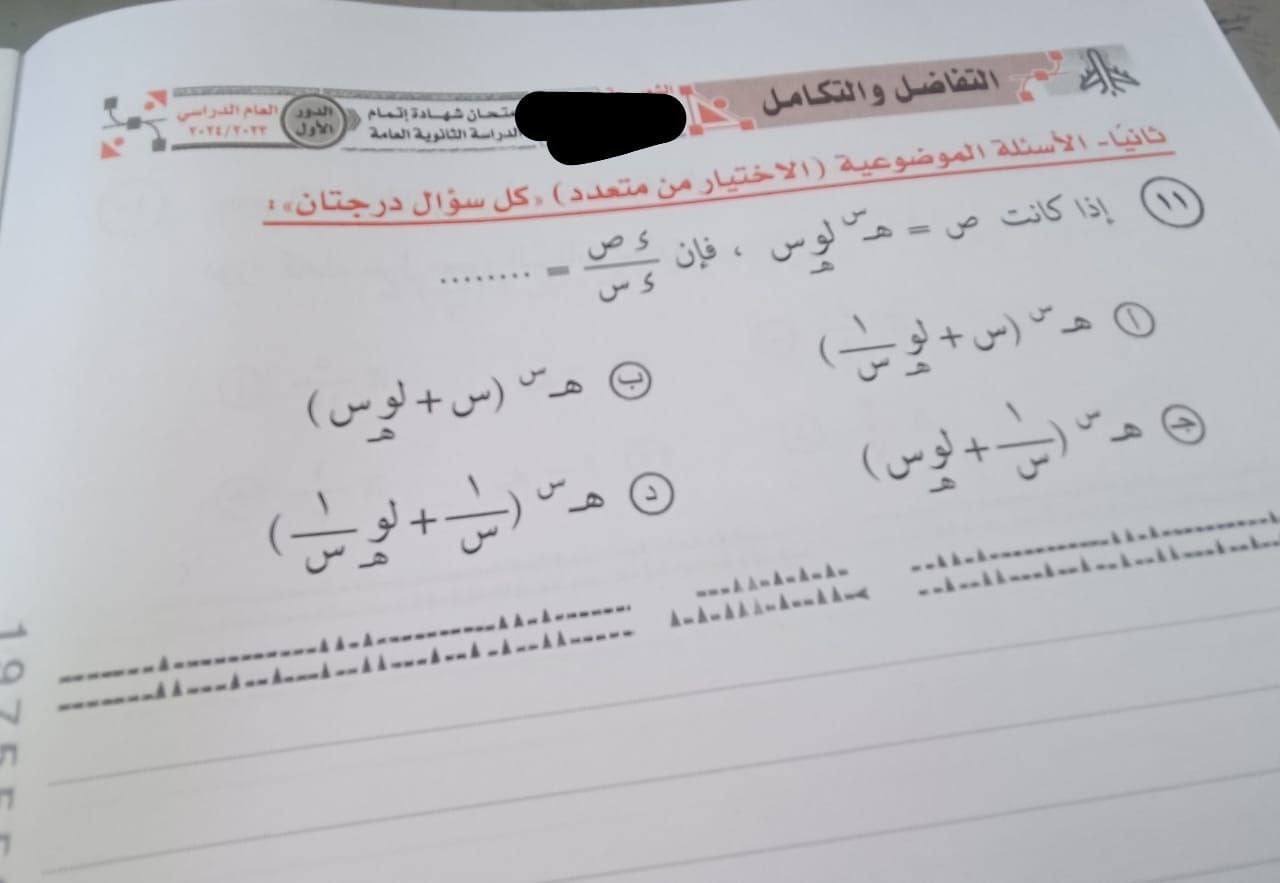 التفاضل والتكامل
امتحان شهادة إتمام
الدراسة الثانوية العامة
الدور
الأول
العام الدراسي
٢٠٢٤/٢٠٢٣
ثانيًا- الأسئلة الموضوعية (الاختيار من متعدد) «كل سؤال درجتان»:
١١ إذا كانت ص = هـ^س لو_هـ س ، فإن ء ص / ء س = ........
أ هـ^س (س + لو_هـ ١/س)
ب هـ^س (س + لو_هـ س)
جـ هـ^س (١/س + لو_هـ س)
د هـ^س (١/س + لو_هـ ١/س)